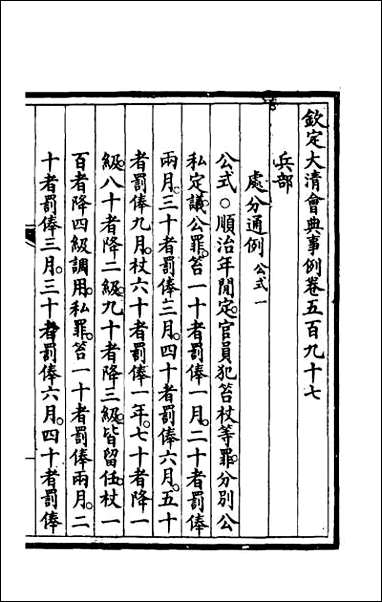 欽定大清會典事例卷五百九十七
兵部
處分通例 公式一
公式○順治年閒定。官員犯笞杖等罪。分別公
私定議。公罪。笞一十者罰俸一月。二十者罰俸
兩月。三十者罰俸三月。四十者罰俸六月。五十
者罰俸九月。杖六十者罰俸一年。七十者降一
級。八十者降二級。九十者降三級。皆留任。杖一
百者降四級調用。私罪。笞一十者罰俸兩月。二
十者罰俸三月。三十者罰俸六月。四十者罰俸